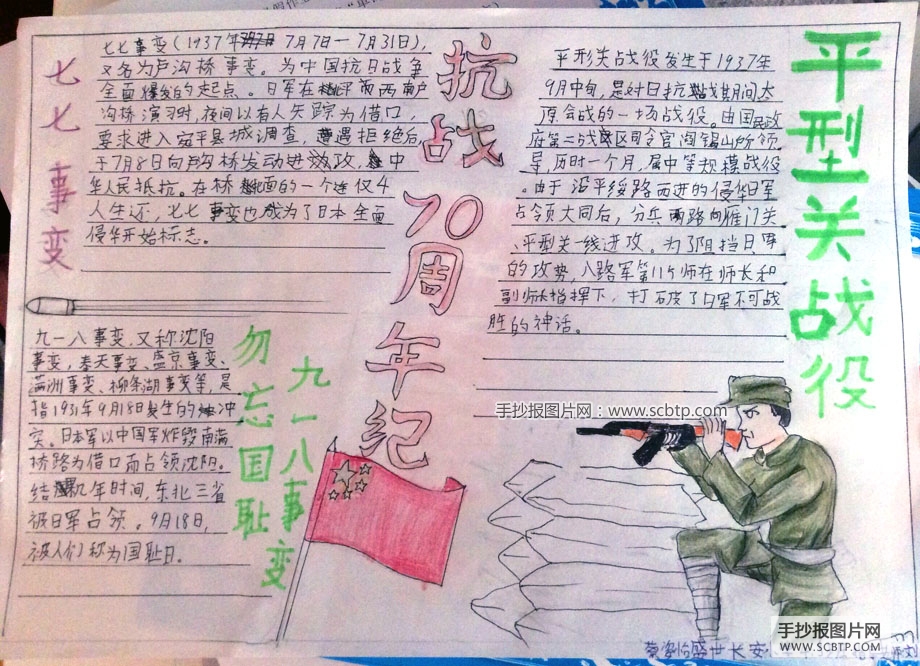 七七事变
七七事变(1937年7月7日—7月31日),
又名为卢沟桥事变。为中国抗日战争
全面爆发的起点。日军在北平西南卢
沟桥演习时,夜间以有人失踪为借口,
要求进入宛平县城调查,遭遇拒绝后,
于7月8日向沟桥发动进攻,中
华人民抵抗。在桥面的一个连仅4
人生还,七七事变也成为了日本全面
侵华开始标志。
抗战70周年纪
平型关战役
平形关战役发生于1937年
9月中旬,是对日抗战期间太
原会战的一场战役。由国民政
府第二战区司令官阎锡山所领
导,历时一个月,属中等规模战役
。由于沿平绥路西进的侵华日军
占领大同后,分兵两路向雁门关
、平型关一线进攻。为了阻挡日军
的攻势,八路军第115师在师长和
副师长指挥下,打破了日军不可战
胜的神话。
九一八事变,又称沈阳
事变,奉天事变、盛京事变、
满洲事变、柳条湖事变等,是
指1931年9月18日发生的冲
突。日本军以中国军炸毁南满
桥路为借口而占领沈阳。
结几年时间,东北三省
被日军占领。9月18日,
被人们称为国耻日。
勿忘国耻
九一八事变
手抄报图片网:www.scbtp.com
手抄报图片网
www.SCBTP.com
盛世长安